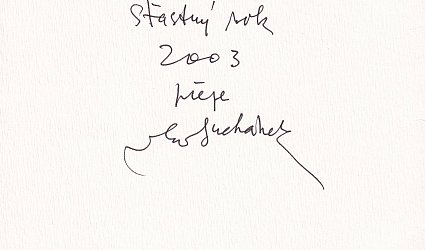 šťastný rok
2003
přeje
Suchánek